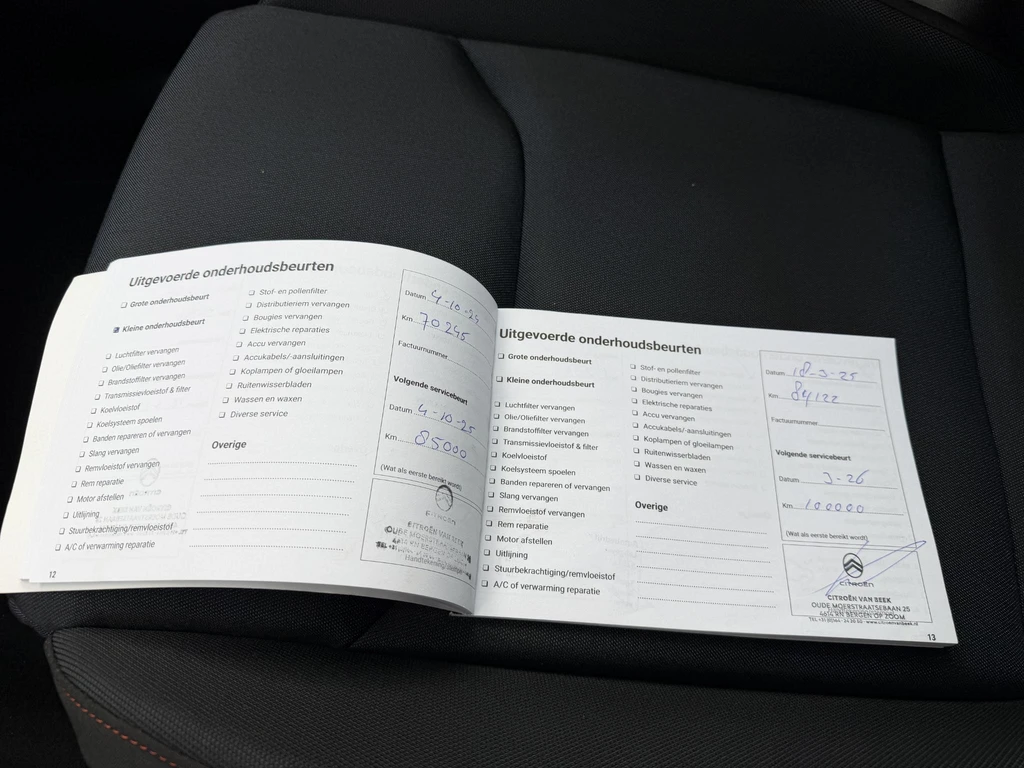 Uitgevoerde onderhoudsbeurten
Grote onderhoudsbeurt
Kleine onderhoudsbeurt
Luchtfilter vervangen
Olie/Oliefilter vervangen
Brandstoffilter vervangen
Transmissievloeistof & filter
Koelvloeistof
Koelsysteem spoelen
Banden repareren of vervangen
Slang vervangen
Remvloeistof vervangen
Rem reparatie
Motor afstellen
Uitlijning
Stuurbekrachtiging/remvloeistof
A/C of verwarming reparatie
12
Stof- en pollenfilter
Distributieriem vervangen
Bougies vervangen
Elektrische reparaties
Accu vervangen
Accukabels/-aansluitingen
Koplampen of gloeilampen
Ruitenwisserbladen
Wassen en waxen
Diverse service
Overige
Datum 4-10-24
Km 70245
Factuurnummer
Volgende servicebeurt
Datum 4-10-25
Km 85000
(Wat als eerste bereikt wordt)
CITROËN
CITROËN VAN BEEK
Uitgevoerde onderhoudsbeurten
Grote onderhoudsbeurt
Kleine onderhoudsbeurt
Luchtfilter vervangen
Olie/Oliefilter vervangen
Brandstoffilter vervangen
Transmissievloeistof & filter
Koelvloeistof
Koelsysteem spoelen
Banden repareren of vervangen
Slang vervangen
Remvloeistof vervangen
Rem reparatie
Motor afstellen
Uitlijning
Stuurbekrachtiging/remvloeistof
A/C of verwarming reparatie
Stof- en pollenfilter
Distributieriem vervangen
Bougies vervangen
Elektrische reparaties
Accu vervangen
Accukabels/-aansluitingen
Koplampen of gloeilampen
Ruitenwisserbladen
Wassen en waxen
Diverse service
Overige
Datum 18-3-25
Km 84122
Factuurnummer
Volgende servicebeurt
Datum 3-26
Km 100000
(Wat als eerste bereikt wordt)
CITROËN
CITROËN VAN BEEK
OUDE MOERSTRAATSEBAAN 25
4614 RN BERGEN OP ZOOM
www.citroenvanbeek.nl
13